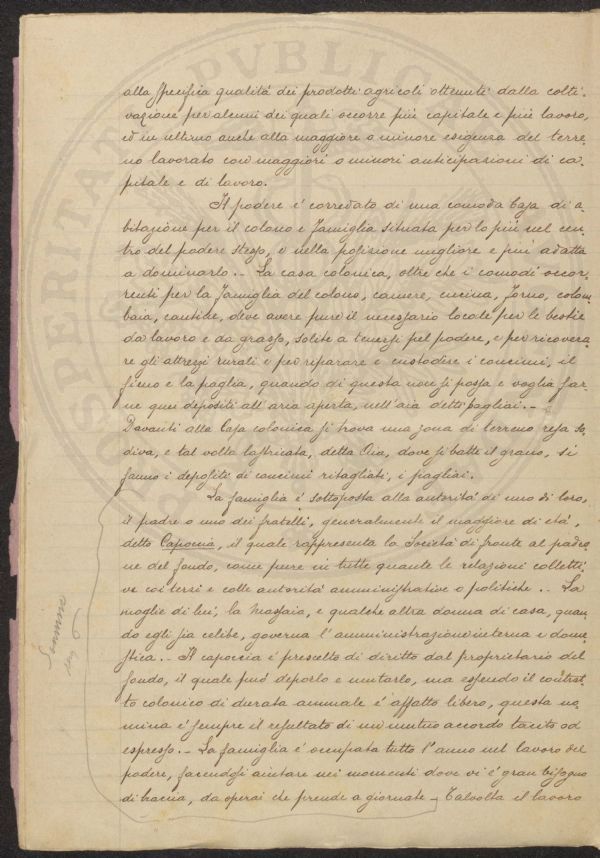 alla specifica qualità dei prodotti agricoli ottenuti dalla colti-
vazione per alcuni dei quali occorre più capitale e più lavoro,
ed in ultimo anche alla maggiore o minore esigenza del terre-
no lavorato con maggiori o minori anticipazioni di ca-
pitale e di lavoro.
Il podere è corredato di una comoda casa di a-
bitazione per il colono e famiglia situata per lo più nel cen-
tro del podere stesso, o nella posizione migliore e più adatta
a dominarlo. - La casa colonica, oltre che i comodi occor-
renti per la famiglia del colono, camere, cucina, forno, colom-
baia, cantine, deve avere pure il necessario locale per le bestie
da lavoro e da grasso, solite a tenersi pel podere, e per ricovera-
re gli attrezzi rurali e per riparare e custodire i concimi, il
fieno e la paglia, quando di questa non si possa e voglia far-
ne quei depositi all'aria aperta, nell'aia detti pagliai. -
Davanti alla casa colonica si trova una zona di terreno resa so-
diva, e tal volta lastricata, detta Aia, dove si batte il grano, si
fanno i depositi di concimi ritagliati, i pagliai.
La famiglia è sottoposta alla autorità di uno di loro,
il padre o uno dei fratelli, generalmente il maggiore di età,
detto Capoccia, il quale rappresenta la Società di fronte al padro-
ne del fondo, come pure in tutte quante le relazioni colletti-
ve coi terzi e colle autorità amministrative o politiche. - La
moglie di lui, la massaia, e qualche altra donna di casa, quan-
do egli sia celibe, governa l'amministrazione interna e dome-
stica. - Il capoccia è prescelto di diritto dal proprietario del
fondo, il quale può deporlo e mutarlo, ma essendo il contrat-
to colonico di durata annuale è affatto libero, questa no-
mina è sempre il resultato di un mutuo accordo tacito od
espresso. - La famiglia è occupata tutto l'anno nel lavoro del
podere, facendosi aiutare nei momenti dove vi è gran bisogno
di braccia, da operai che prende a giornate - Talvolta il lavoro